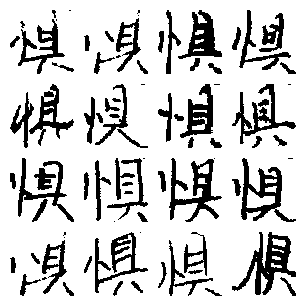 惧惧惧惧
惧惧惧惧
惧惧惧惧
惧惧惧惧